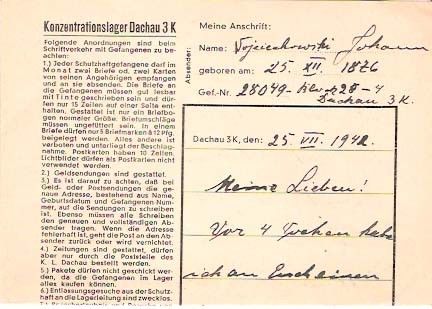 Konzentrationslager Dachau 3 K
Folgende Anordnungen sind beim
Schriftverkehr mit Gefangenen zu be-
achten:
1.) Jeder Schutzhaftgefangene darf im
Monat zwei Briefe od. zwei Karten
von seinen Angehörigen empfangen
und an sie absenden. Die Briefe an
die Gefangenen müssen gut lesbar
mit Tinte geschrieben sein und dür-
fen nur 15 Zeilen auf einer Seite ent-
halten. Gestattet ist nur ein Briefbo-
gen normaler Größe. Briefumschläge
müssen ungefüttert sein. In einem
Briefe dürfen nur 5 Briefmarken à 12 Pfg.
beigelegt werden. Alles andere ist
verboten und unterliegt der Beschlag-
nahme. Postkarten haben 10 Zeilen.
Lichtbilder dürfen als Postkarten nicht
verwendet werden.
2.) Geldsendungen sind gestattet.
3.) Es ist darauf zu achten, daß bei
Geld- oder Postsendungen die genaue
Adresse, bestehend aus Name,
Geburtsdatum und Gefangenen-Num-
mer, auf die Sendungen zu schreiben
ist. Ebenso müssen alle Schreiben
den genauen und vollständigen Ab-
sender tragen. Wenn die Adresse
fehlerhaft ist, geht die Post an den Ab-
sender zurück oder wird vernichtet.
4.) Zeitungen sind gestattet, dürfen
aber nur durch die Poststelle des
K. L. Dachau bestellt werden.
5.) Pakete dürfen nicht geschickt wer-
den, da die Gefangenen im Lager
alles kaufen können.
6.) Entlassungsgesuche aus der Schutz-
haft an die Lagerleitung sind zwecklos.
Absender:
Meine Anschrift:
Name: Wojciechowski Johann
geboren am: 25. XII. 1876
Gef.-Nr. 28049 - 28-4
Dachau 3 K.
Dachau 3 K, den: 25. VII. 1942.
Meine Lieben!
Vor 4 Wochen habe
ich an